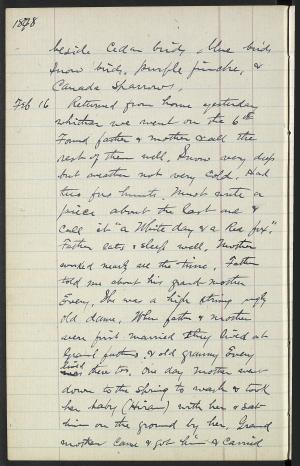 1878
beside Cedar birds, blue birds
Snow birds, purple finches, &
Canada Sparrows.
Feb 16 Returned from home yesterday
whither we went on the 6th
Found father & mother & all the
rest of them well. Snow very deep
but weather not very cold. Had
two fox hunts. Must write a
piece about the last one &
call it "a White day & a Red fox".
Father eats & sleeps well. Mother
worked nearly all the time. Father
told me about his grand mother
Every, She was a high strung ugly
old dame. When father & mother
were first married they lived at
Grand fathers, & old granny Every
lived there too. One day mother went
down to the spring to wash & took
her baby (Hiram) with her & sat
him on the ground by her. Grand
mother came & got him & carried